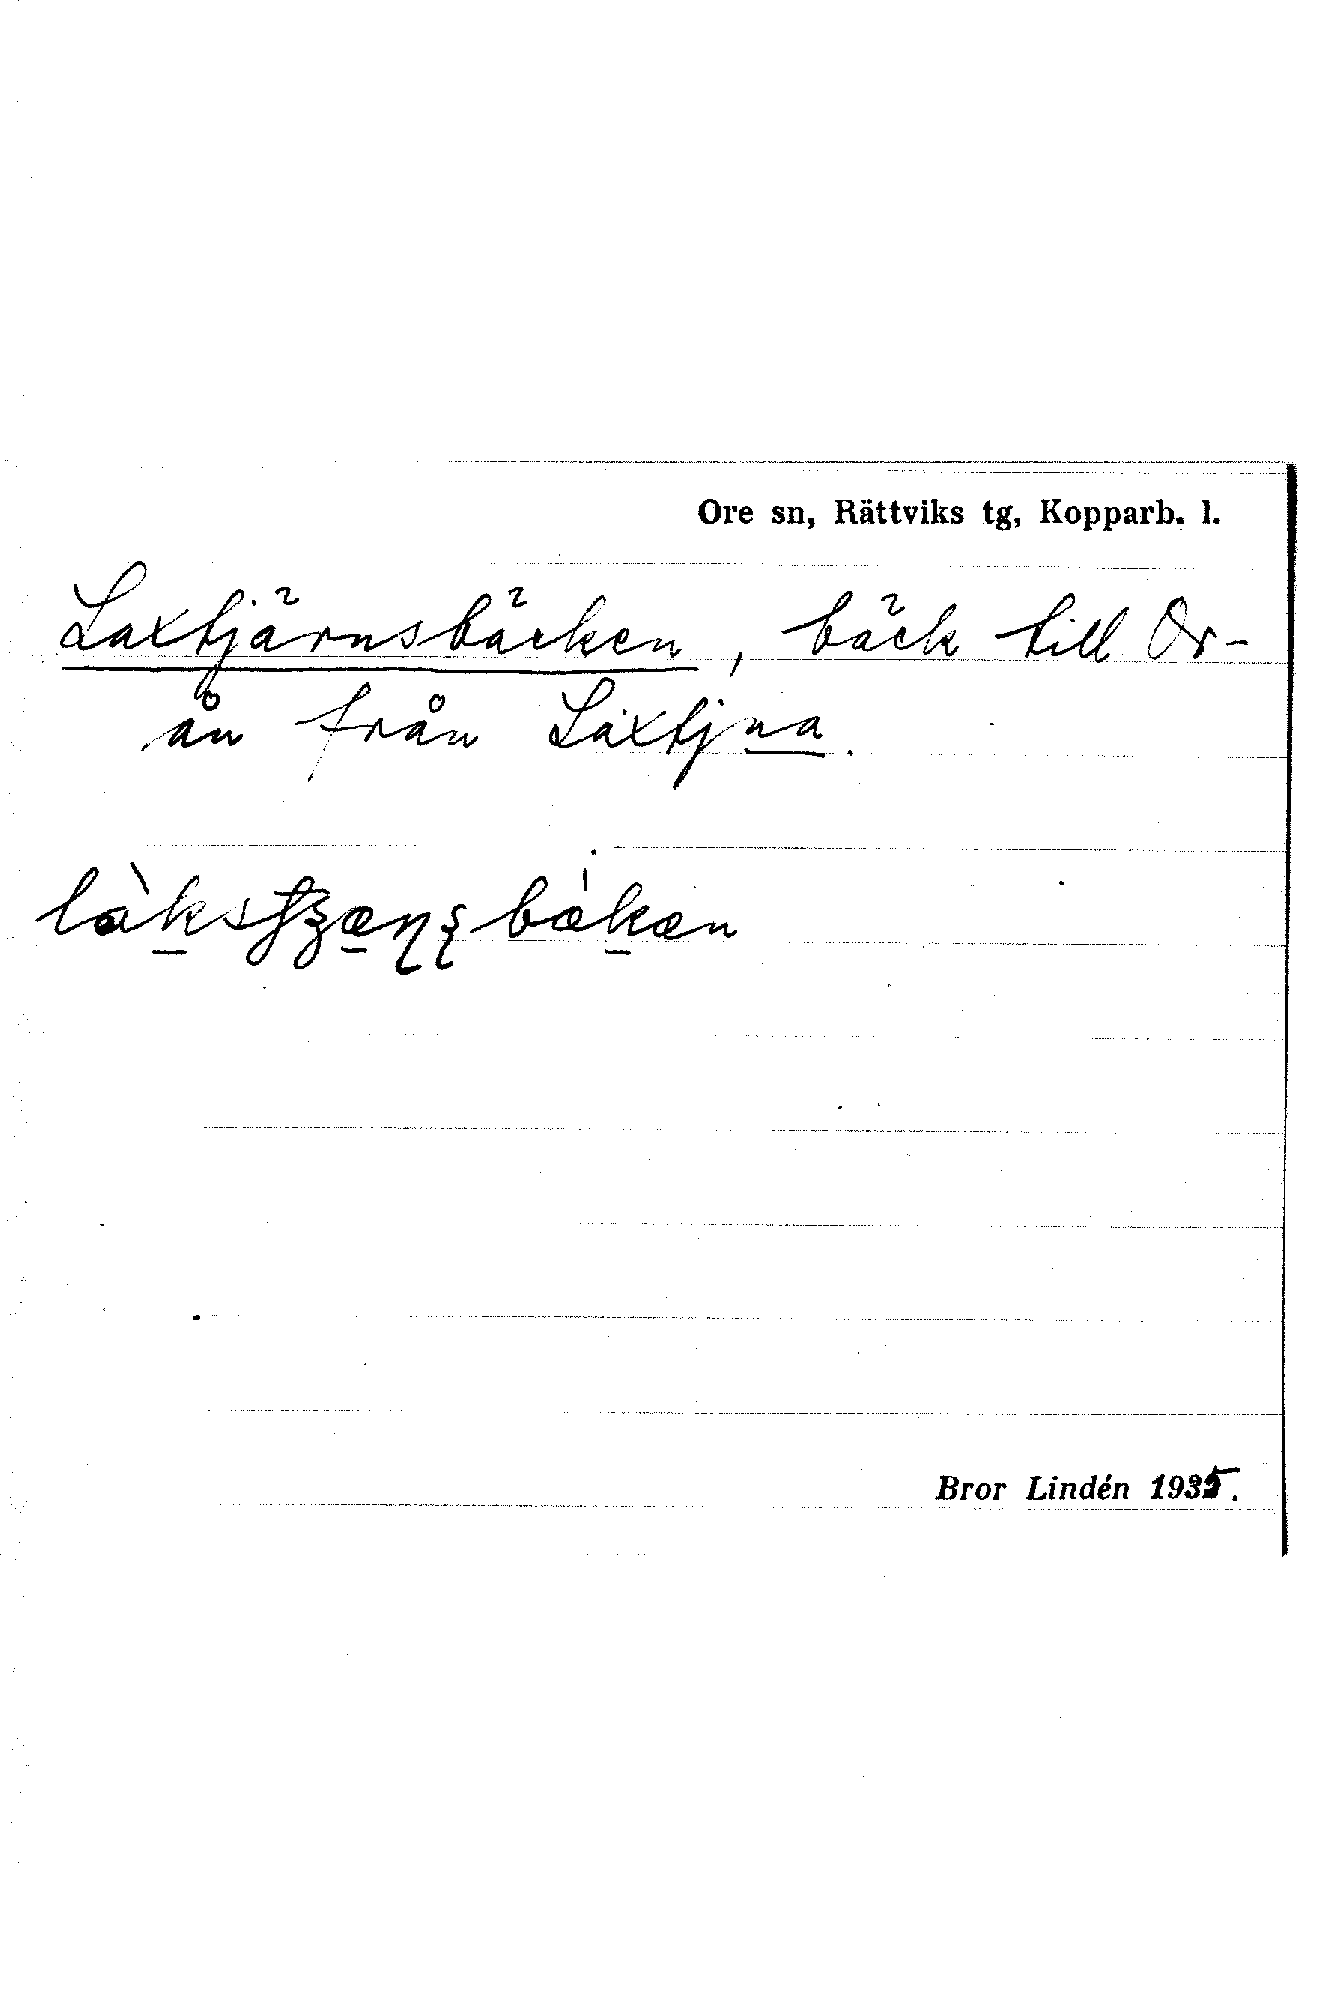 Ore sn, Rättviks tg, Kopparb. l.
Laxtjärnsbäcken, bäck till Or-
ån från Laxtjna.
Bror Lindén 1935.